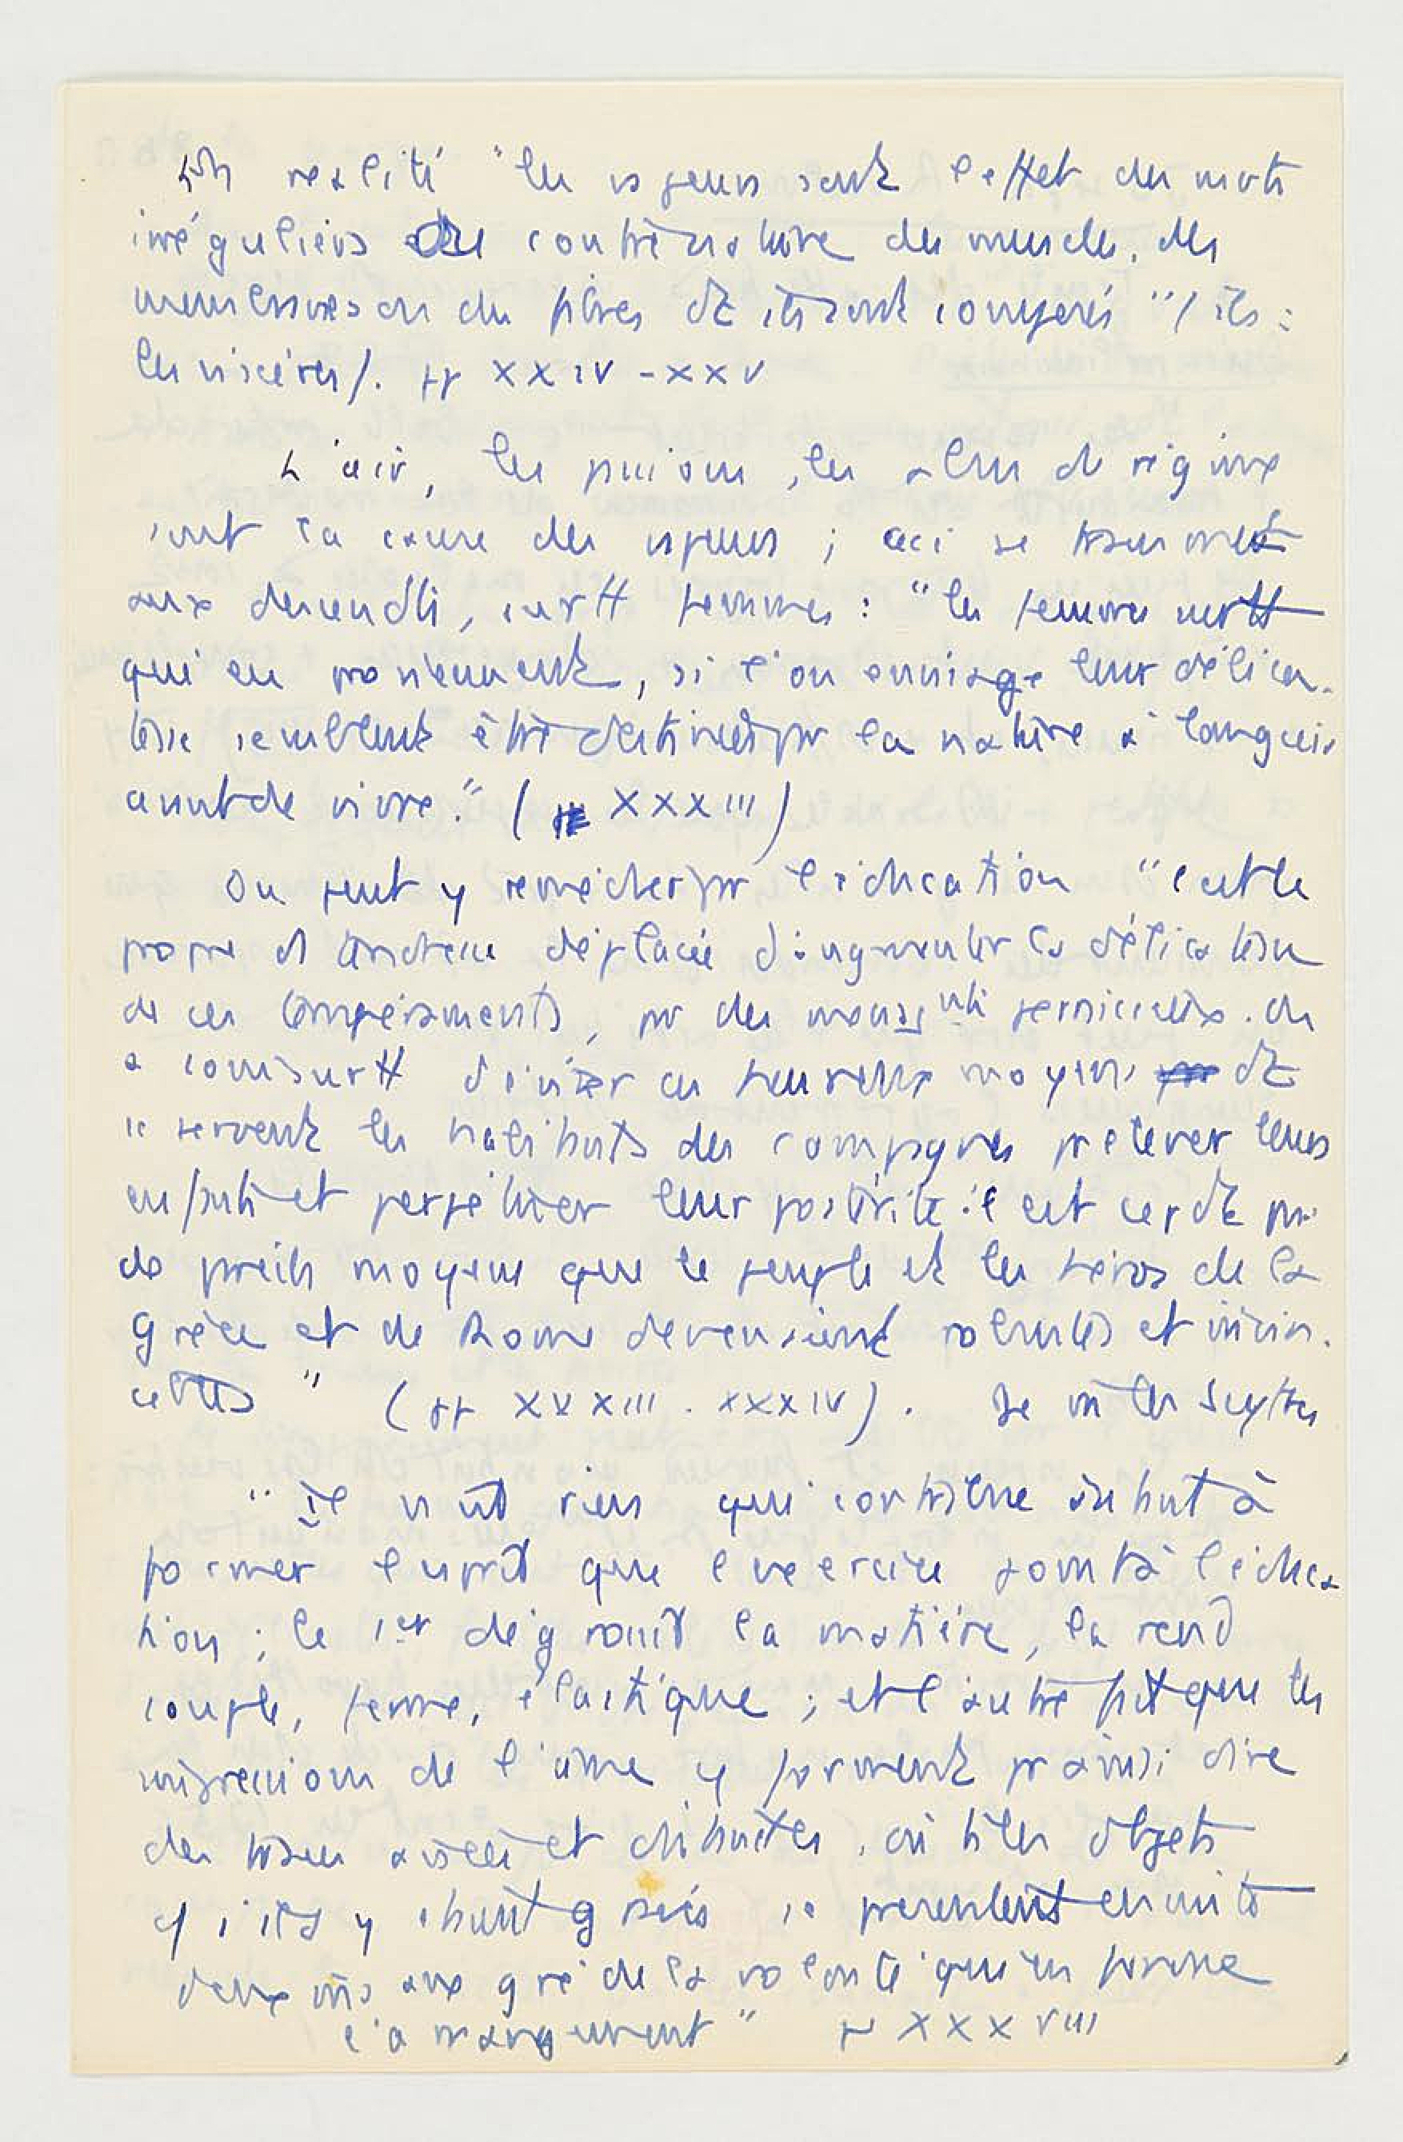 En realité "les vapeurs sont l'effet des mvts
irréguliers ou contre nature des muscles, des
membranes ou des fibres dt ils sont composés" / ils :
les viscères/. pp XXIV - XXV
L'air, les passions, les abus de régime
sont la cause des vapeurs ; ceci se transmet
aux descendts, surtt femmes : "les femmes surtt
qui en proviennent, si l'on envisage leur délica-
tesse semblent être destinées pr la nature à languir
avant de vivre." ( XXXIII)
On peut y remédier pr l'education "c'est le
propre d tendresse déplacée d'augmenter la délicatesse
de ces tempéraments, pr des moyens pernicieux. On
a comis surtt d'éviter ces heureux moyens dt
se servent les habitants des campagnes pr élever leurs
enfants et perpétuer leur postérité. C'est cepdt pr
de pareils moyens que le peuple et les héros de la
Grèce et de Rome devenaient robustes et invin-
cibles " (pp XXXIII - XXXIV). Je vis les Scythes
"Il n'est rien qui contribue autant à
former l'esprit que l'exercice joint à l'éduca
tion ; le 1er dégrossit la matière, la rend
souple, ferme, élastique ; et l'autre fait que les
impressions de l'âme y forment pr ainsi dire
des traces aisées et distinctes, où ts les objets
qui s'y étant gravés se présentent ensuite
deux fois aux gré de la volonté qui en forme
l'arrangement" p XXXVIII